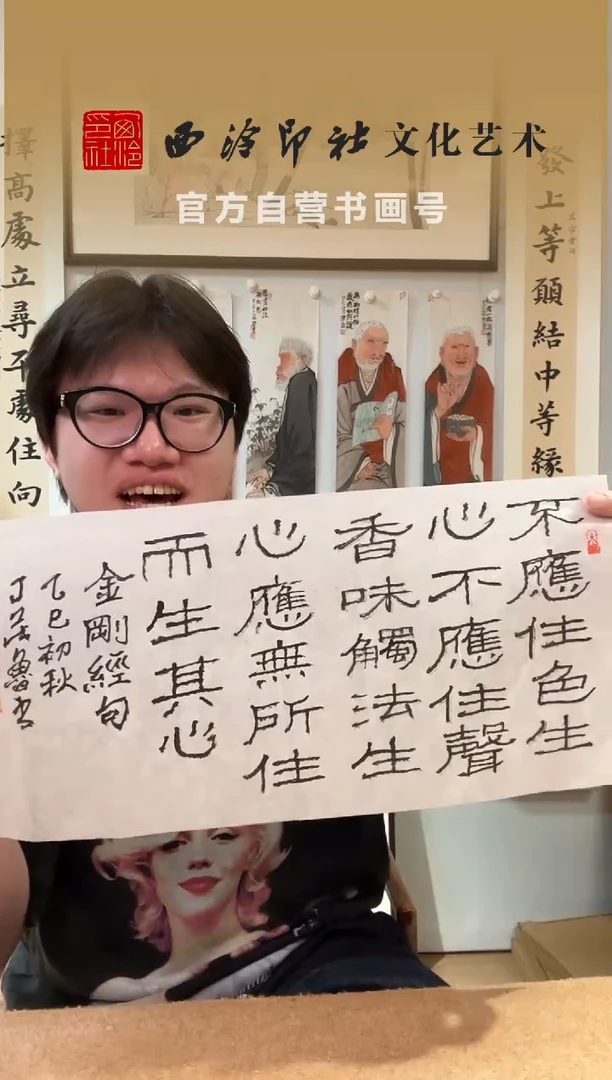 西泠印社
西泠印社文化艺术
官方自营书画号
發上等願結中等緣
擇高處立尋平處住向
不應住色生
心不應住聲
香味觸法生
心應無所住
而生其心
金剛經句
乙巳初秋